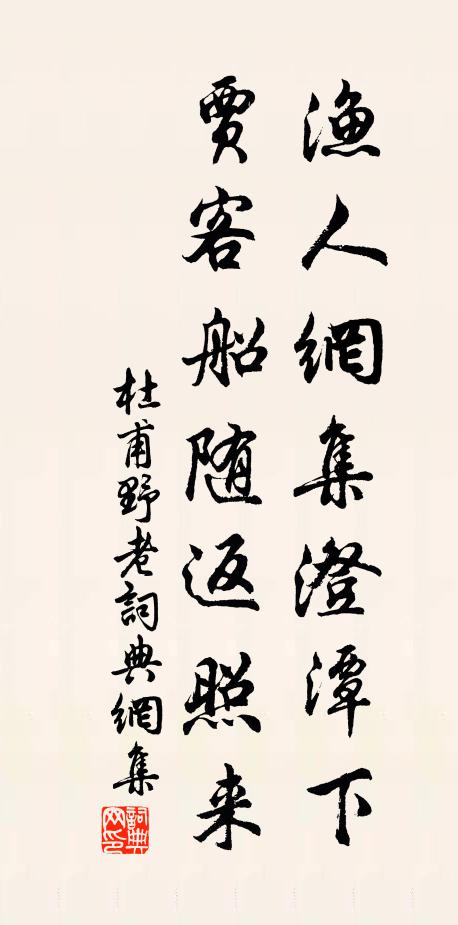 渔人網集澄潭下
賈客船随返照来
杜甫野老詞典網集
詞典網印